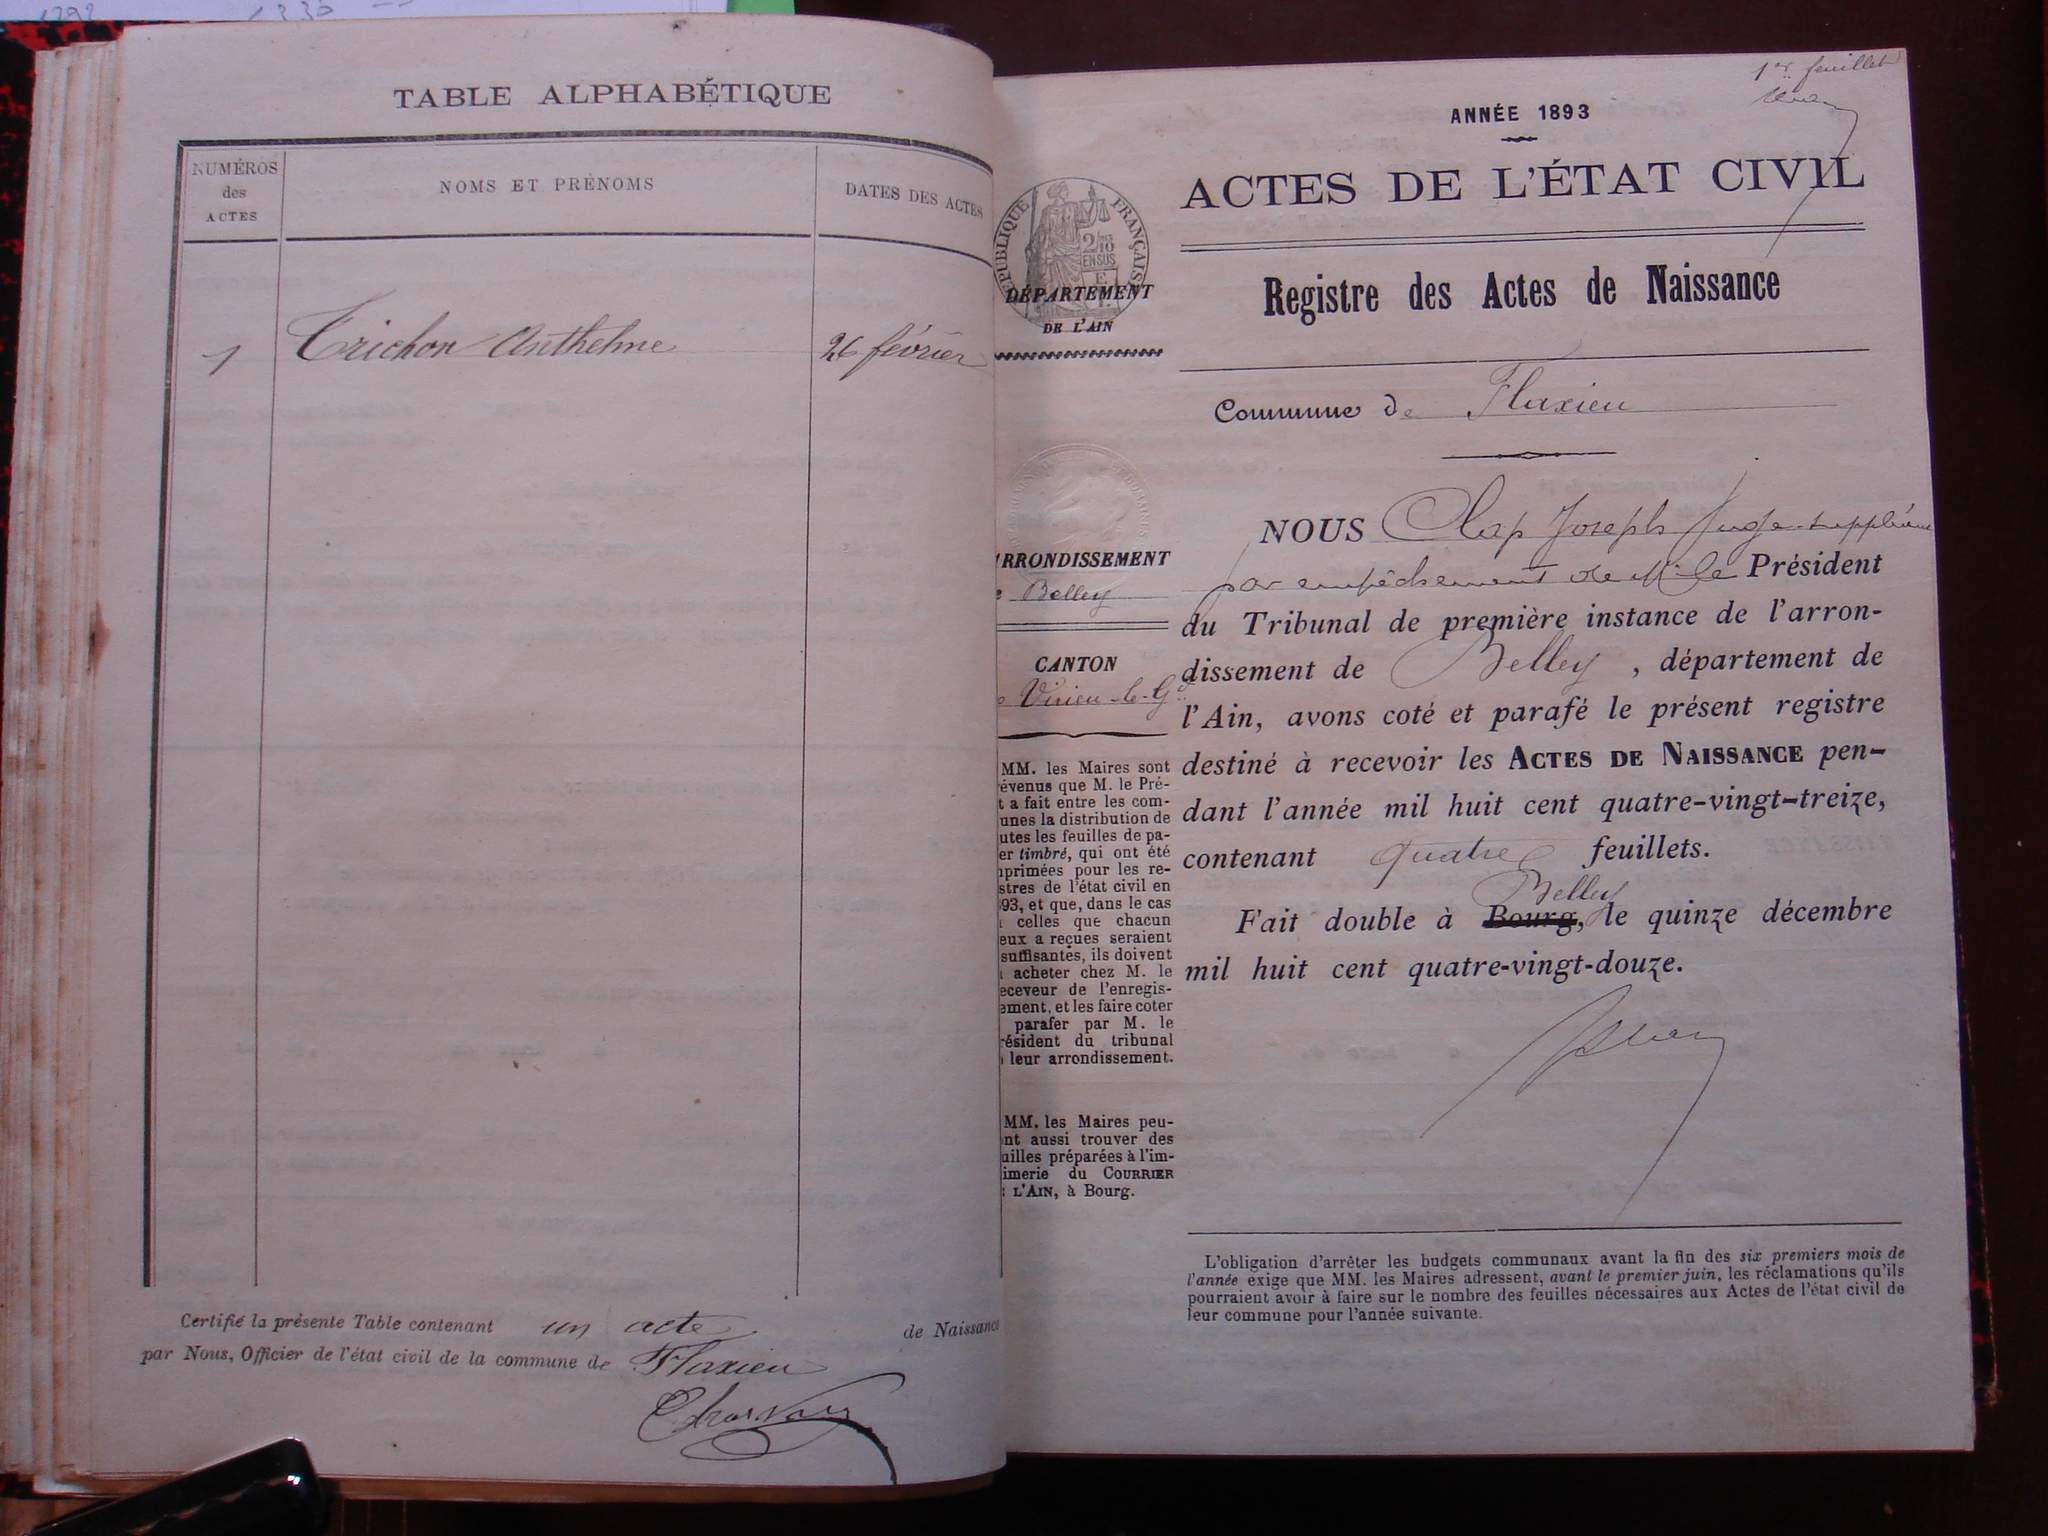 TABLE ALPHABÉTIQUE
NUMÉROS
des
ACTES
NOMS ET PRÉNOMS
DATES DES ACTES
1
Trichon Anthelme
26 février
Certifié la présente Table contenant un acte de Naissance
par Nous, Officier de l'état civil de la commune de Flaxieu
1er feuillet
ANNÉE 1893
ACTES DE L'ÉTAT CIVIL
Registre des Actes de Naissance
Commune de Flaxieu
RÉPUBLIQUE FRANÇAISE
2/10
EN SUS
DÉPARTEMENT
DE L'AIN
RRONDISSEMENT
e Belley
CANTON
e Virieu-le-Gd
MM. les Maires sont
évenus que M. le Pré-
t a fait entre les com-
unes la distribution de
utes les feuilles de pa-
er timbré, qui ont été
primées pour les re-
stres de l'état civil en
93, et que, dans le cas
celles que chacun
eux a reçues seraient
suffisantes, ils doivent
acheter chez M. le
eceveur de l'enregis-
ement, et les faire coter
parafer par M. le
résident du tribunal
leur arrondissement.
MM. les Maires peu-
nt aussi trouver des
uilles préparées à l'im-
imerie du COURRIER
L'AIN, à Bourg.
NOUS Clap Joseph Juge-suppléant
par empêchement de M. le Président
du Tribunal de première instance de l'arron-
dissement de Belley, département de
l'Ain, avons coté et parafé le présent registre
destiné à recevoir les ACTES DE NAISSANCE pen-
dant l'année mil huit cent quatre-vingt-treize,
contenant quatre feuillets.
Belley
Fait double à Bourg, le quinze décembre
mil huit cent quatre-vingt-douze.
L'obligation d'arrêter les budgets communaux avant la fin des six premiers mois de
l'année exige que MM. les Maires adressent, avant le premier juin, les réclamations qu'ils
pourraient avoir à faire sur le nombre des feuilles nécessaires aux Actes de l'état civil de
leur commune pour l'année suivante.